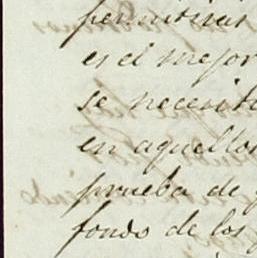 permitirá
es el mejor
se necesita
en aquellos
prueba de
fondo de los